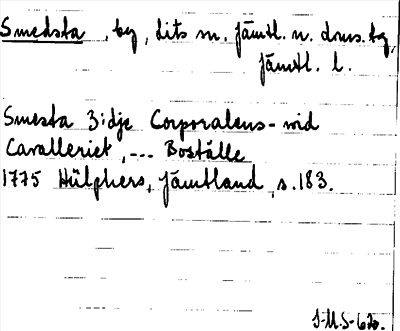 Smedsta, by, Lits sn. Jämtl. n. doms. tg,
Jämtl. l.
Smesta 3:dje Corporalens-wid
Cavalleriet, --- Boställe
1775 Hülphers, Jämtland, s. 183.